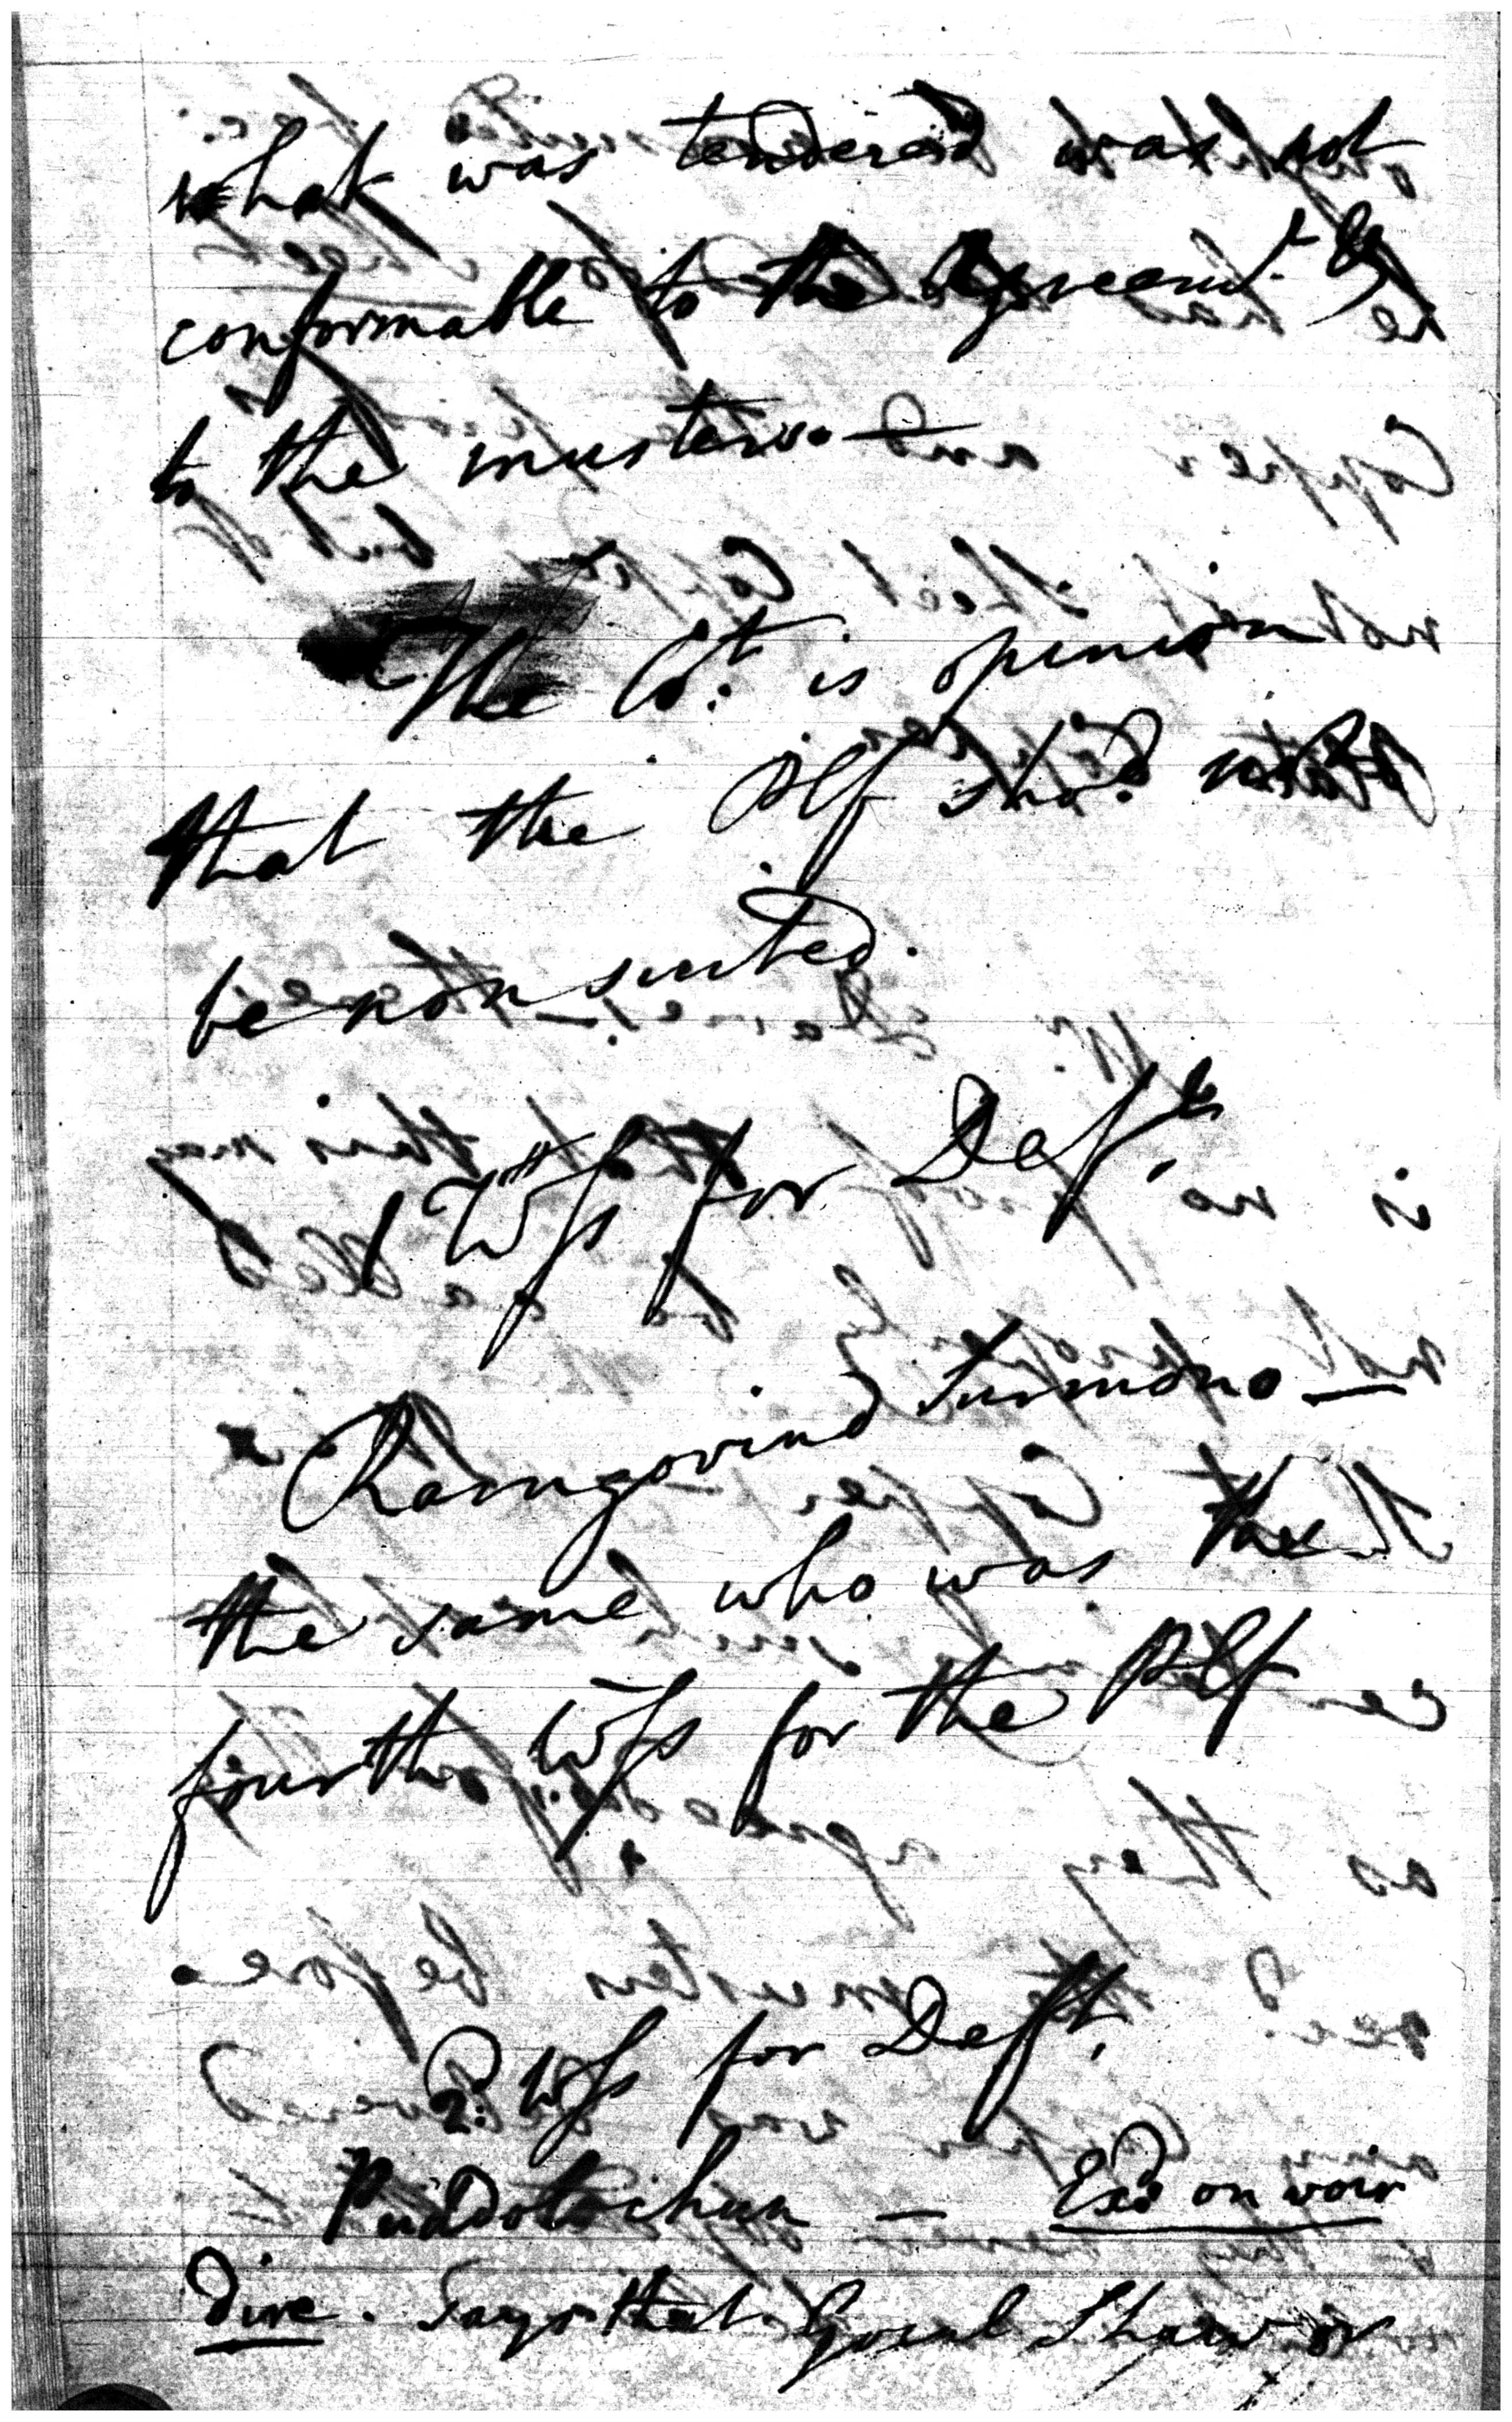 what was tendered was not
conformable to the Agreemt. &
to the musters. —
The Ct. is opinion
that the Plf shod. not
be nonsuited.
1st Wss for Defts
Ramgovind Surmono —
the same who was the
fourth Wss for the Plf
2d. Wss for Deft.
Puddolochun — Exd on voir
Dire. Says that Gocul Shaw is